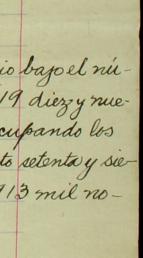 io bajo el nú-
19 diez y nue-
cupando los
to setenta y sie-
913 mil no-